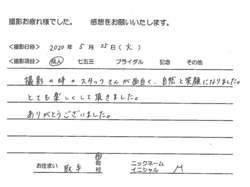 撮影お疲れ様でした。 感想をお願いいたします。
<撮影日時> 2020年 5月 25日(火)
<撮影項目> 成人 七五三 ブライダル 記念 その他
撮影の時のスタッフさんが面白く、自然と笑顔になりました。
とても楽しくして頂きました。
ありがとうございました。
お住まい 取手 市 町 村 ニックネーム イニシャル M